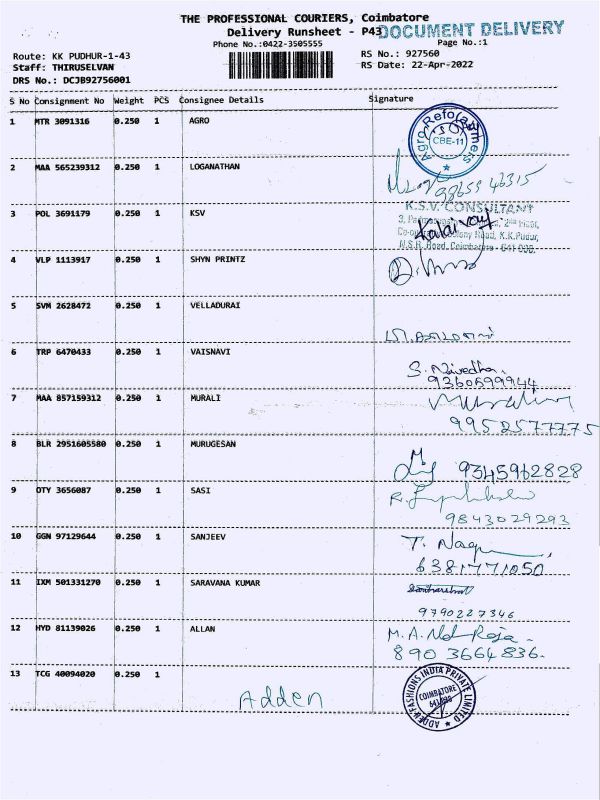 THE PROFESSIONAL COURIERS, Coimbatore
Delivery Runsheet - P43
DOCUMENT DELIVERY
Phone No.:0422-3505555
Page No.:1
Route: KK PUDHUR-1-43
RS No.: 927560
Staff: THIRUSELVAN
RS Date: 22-Apr-2022
DRS No.: DCJB92756001
S No Consignment No Weight PCS Consignee Details Signature
1 MTR 3091316 0.250 1 AGRO
CBE-11
2 MAA 565239312 0.250 1 LOGANATHAN
3 POL 3691179 0.250 1 KSV
K.S.V. CONSULTANT
Colony Road, K.K.Pudur,
N.S.R. Road, Coimbatore - 641 038.
4 VLP 1113917 0.250 1 SHYN PRINTZ
5 SVM 2628472 0.250 1 VELLADURAI
6 TRP 6470433 0.250 1 VAISNAVI
S. Nivedha
9360699944
7 MAA 857159312 0.250 1 MURALI
9952577775
8 BLR 2951605580 0.250 1 MURUGESAN
9345962828
9 OTY 3656087 0.250 1 SASI
9843029293
10 GGN 97129644 0.250 1 SANJEEV
T. Naga
6381771050
11 IXM 501331270 0.250 1 SARAVANA KUMAR
9790227346
12 HYD 81139026 0.250 1 ALLAN
M.A. Roja
8903664836.
13 TCG 40094020 0.250 1
Adden
ADDEN FASHIONS INDIA PRIVATE LIMITED
COIMBATORE